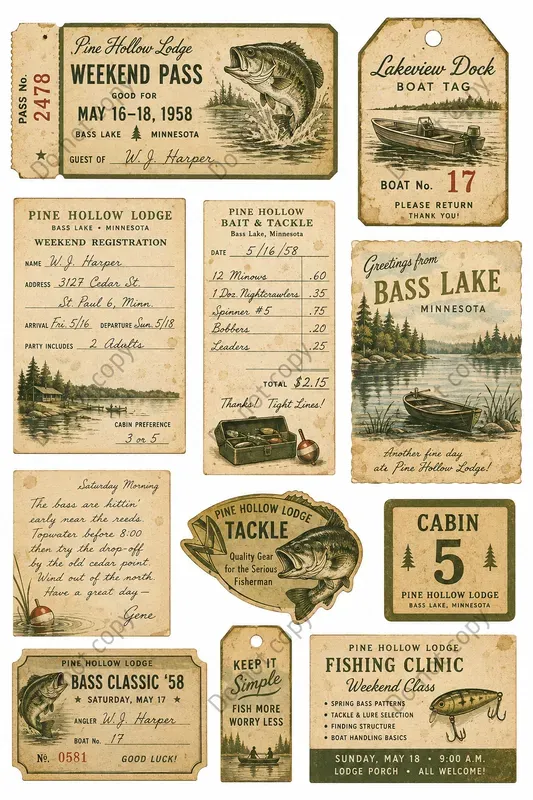 PASS No. 2478
Pine Hollow Lodge
WEEKEND PASS
GOOD FOR
MAY 16–18, 1958
BASS LAKE MINNESOTA
GUEST OF W. J. Harper
Lakeview Dock
BOAT TAG
BOAT No. 17
PLEASE RETURN
THANK YOU!
PINE HOLLOW LODGE
BASS LAKE • MINNESOTA
WEEKEND REGISTRATION
NAME W. J. Harper
ADDRESS 3127 Cedar St.
St. Paul 6, Minn.
ARRIVAL Fri. 5/16 DEPARTURE Sun. 5/18
PARTY INCLUDES 2 Adults
CABIN PREFERENCE
3 or 5
PINE HOLLOW
BAIT & TACKLE
Bass Lake, Minnesota
DATE 5/16/58
12 Minows .60
1 Doz. Nightcrawlers .35
Spinner #5 .75
Bobbers .20
Leaders .25
TOTAL $2.15
Thanks! Tight Lines!
Greetings from
BASS LAKE
MINNESOTA
Another fine day
at Pine Hollow Lodge!
Saturday Morning
The bass are hittin'
early near the reeds.
Topwater before 8:00
then try the drop-off
by the old cedar point.
Wind out of the north.
Have a great day—
Gene
PINE HOLLOW LODGE
TACKLE
Quality Gear
for the Serious
Fisherman
CABIN
5
PINE HOLLOW LODGE
BASS LAKE, MINNESOTA
PINE HOLLOW LODGE
BASS CLASSIC '58
★ SATURDAY, MAY 17 ★
ANGLER W. J. Harper
BOAT No. 17
No. 0581 GOOD LUCK!
KEEP IT
Simple
FISH MORE
WORRY LESS
PINE HOLLOW LODGE
FISHING CLINIC
Weekend Class
• SPRING BASS PATTERNS
• TACKLE & LURE SELECTION
• FINDING STRUCTURE
• BOAT HANDLING BASICS
SUNDAY, MAY 18 • 9:00 A.M.
LODGE PORCH • ALL WELCOME!
Do not copy